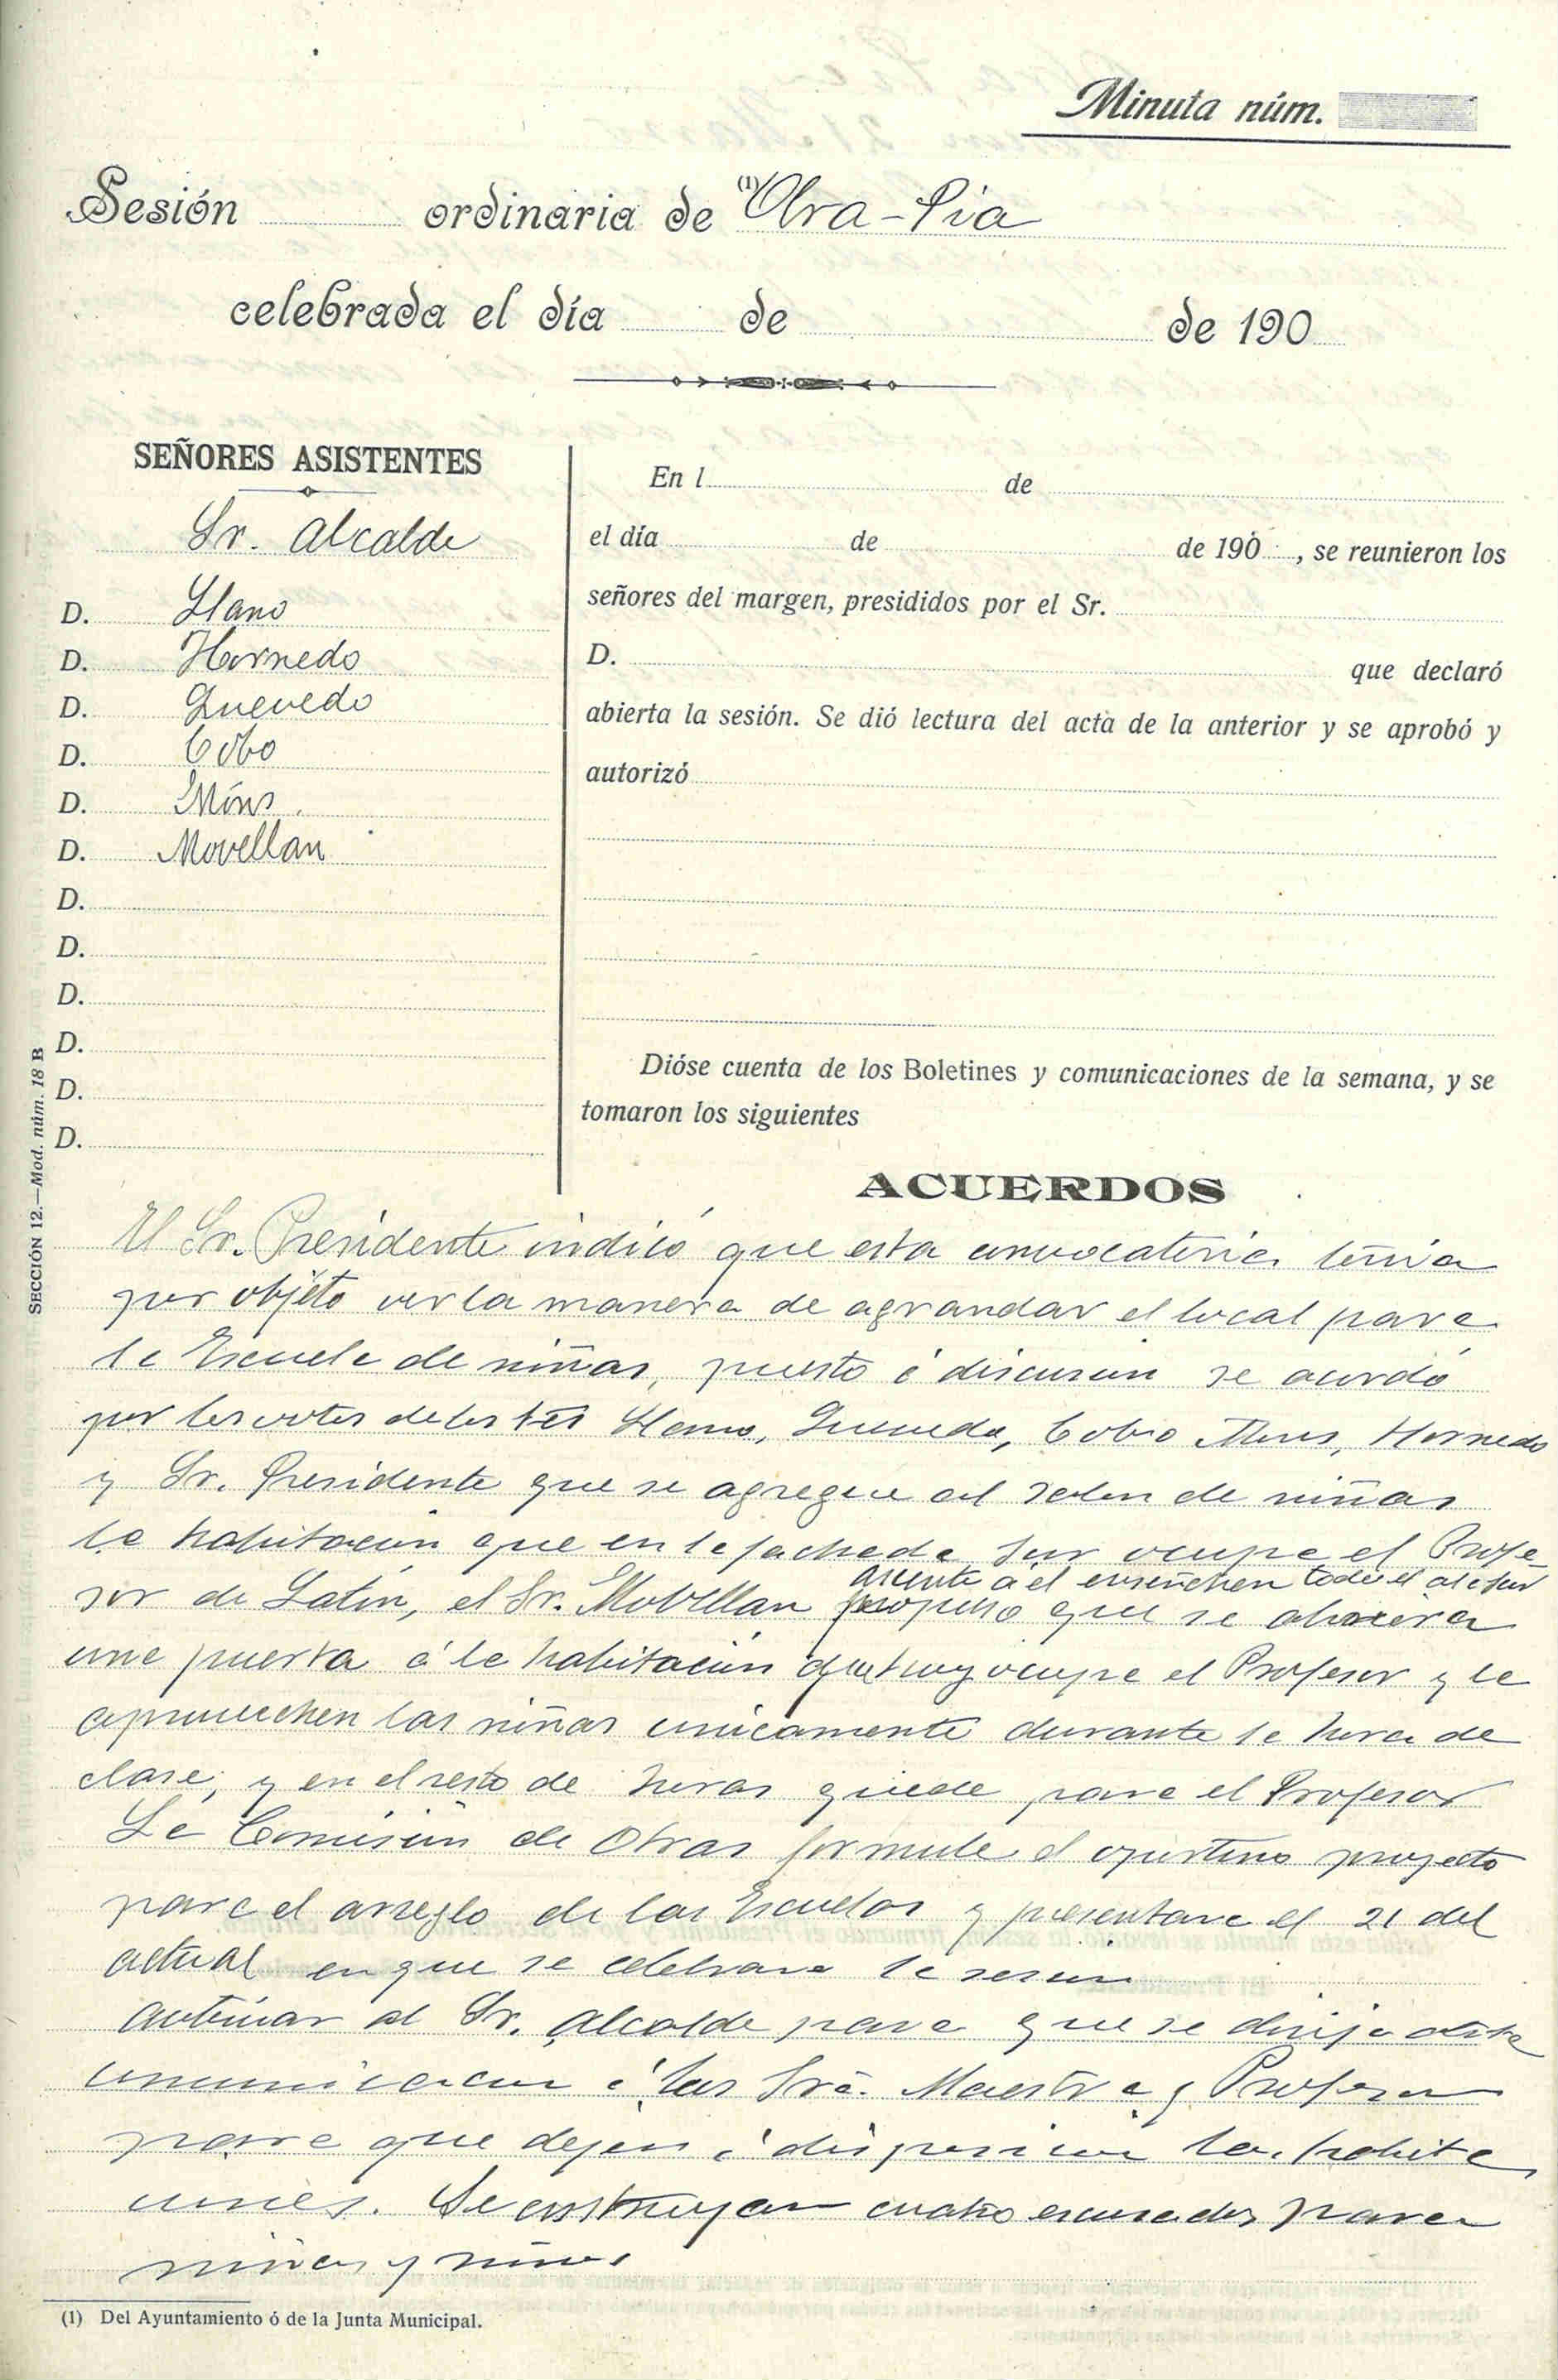 Minuta núm.
Sesión ordinaria de (1) Obra-Pia
celebrada el día de de 190
SEÑORES ASISTENTES
Sr. Alcalde
D. Llano
D. Hornedo
D. Quevedo
D. Cobo
D. Móns
D. Movellan
D.
D.
D.
D.
D.
D.
En l de
el día de de 190 , se reunieron los
señores del margen, presididos por el Sr.
D. que declaró
abierta la sesión. Se dió lectura del acta de la anterior y se aprobó y
autorizó
Dióse cuenta de los Boletines y comunicaciones de la semana, y se
tomaron los siguientes
ACUERDOS
El Sr. Presidente indicó que esta convocatoria tenia
por objeto ver la manera de agrandar el local para
la Escuela de niñas, puesto á discusion se acordó
por los votos de los Llano, Quevedo, Cobo Mons, Hornedo
y Sr. Presidente que se agregue al salon de niñas
la habitacion que en la fachada sur ocupa el Profe
sor de Latin, el Sr. Movellan propuso que se abriera
una puerta á la habitacion que hoy ocupa el Profesor y la
aprovechen las niñas unicamente durante la hora de
clase, y en el resto de horas quede para el Profesor
La Comision de Obras formule el oportuno proyecto
para el arreglo de las Escuelas y presentara el 21 del
actual en que se celebrara la sesion
Autorizar al Sr. Alcalde para que se dirija
comunicacion á las Sra. Maestra y Profesor
para que dejen á disposicion las habita
ciones. Se construyan cuatro escusados para
niñas y niños
(1) Del Ayuntamiento ó de la Junta Municipal.
SECCIÓN 12.—Mod. núm. 18 B